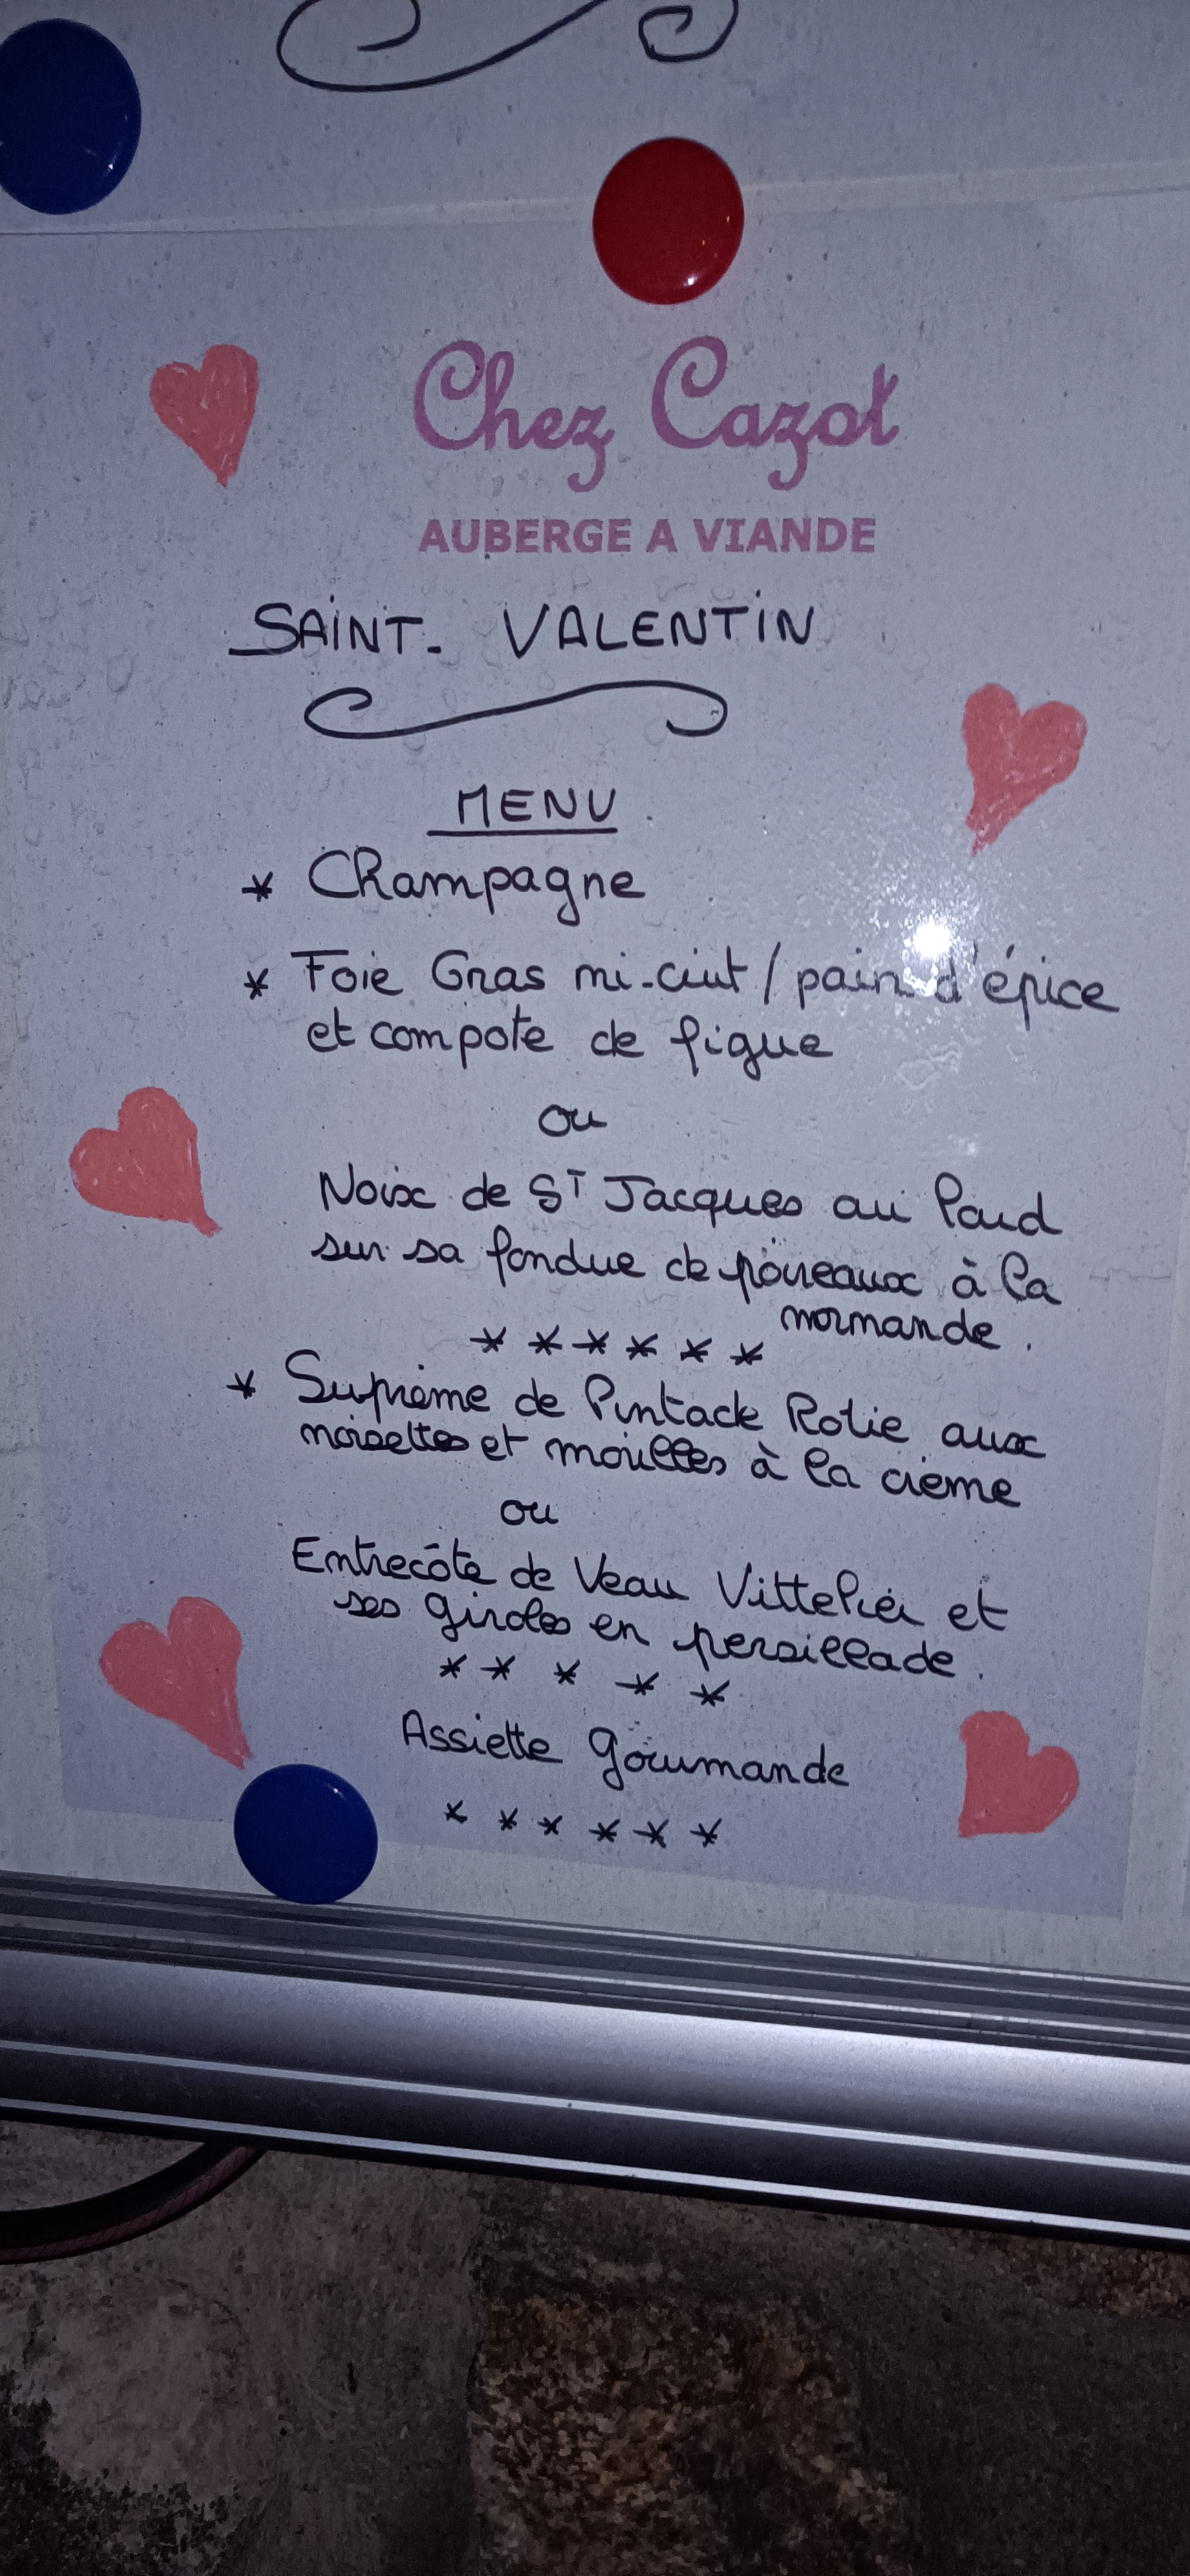 Chez Cazot
AUBERGE A VIANDE
SAINT-VALENTIN
MENU
* Champagne
* Foie Gras mi-cuit / pain d'épice
et compote de figue
ou
Noix de ST Jacques au lard
sur sa fondue de poireaux à la
normande.
* * * * * *
* Suprème de Pintade Rotie aux
noisettes et morilles à la crème
ou
Entrecôte de Veau Vittelier et
ses giroles en persillade.
* * * * *
Assiette Gourmande
* * * * * *